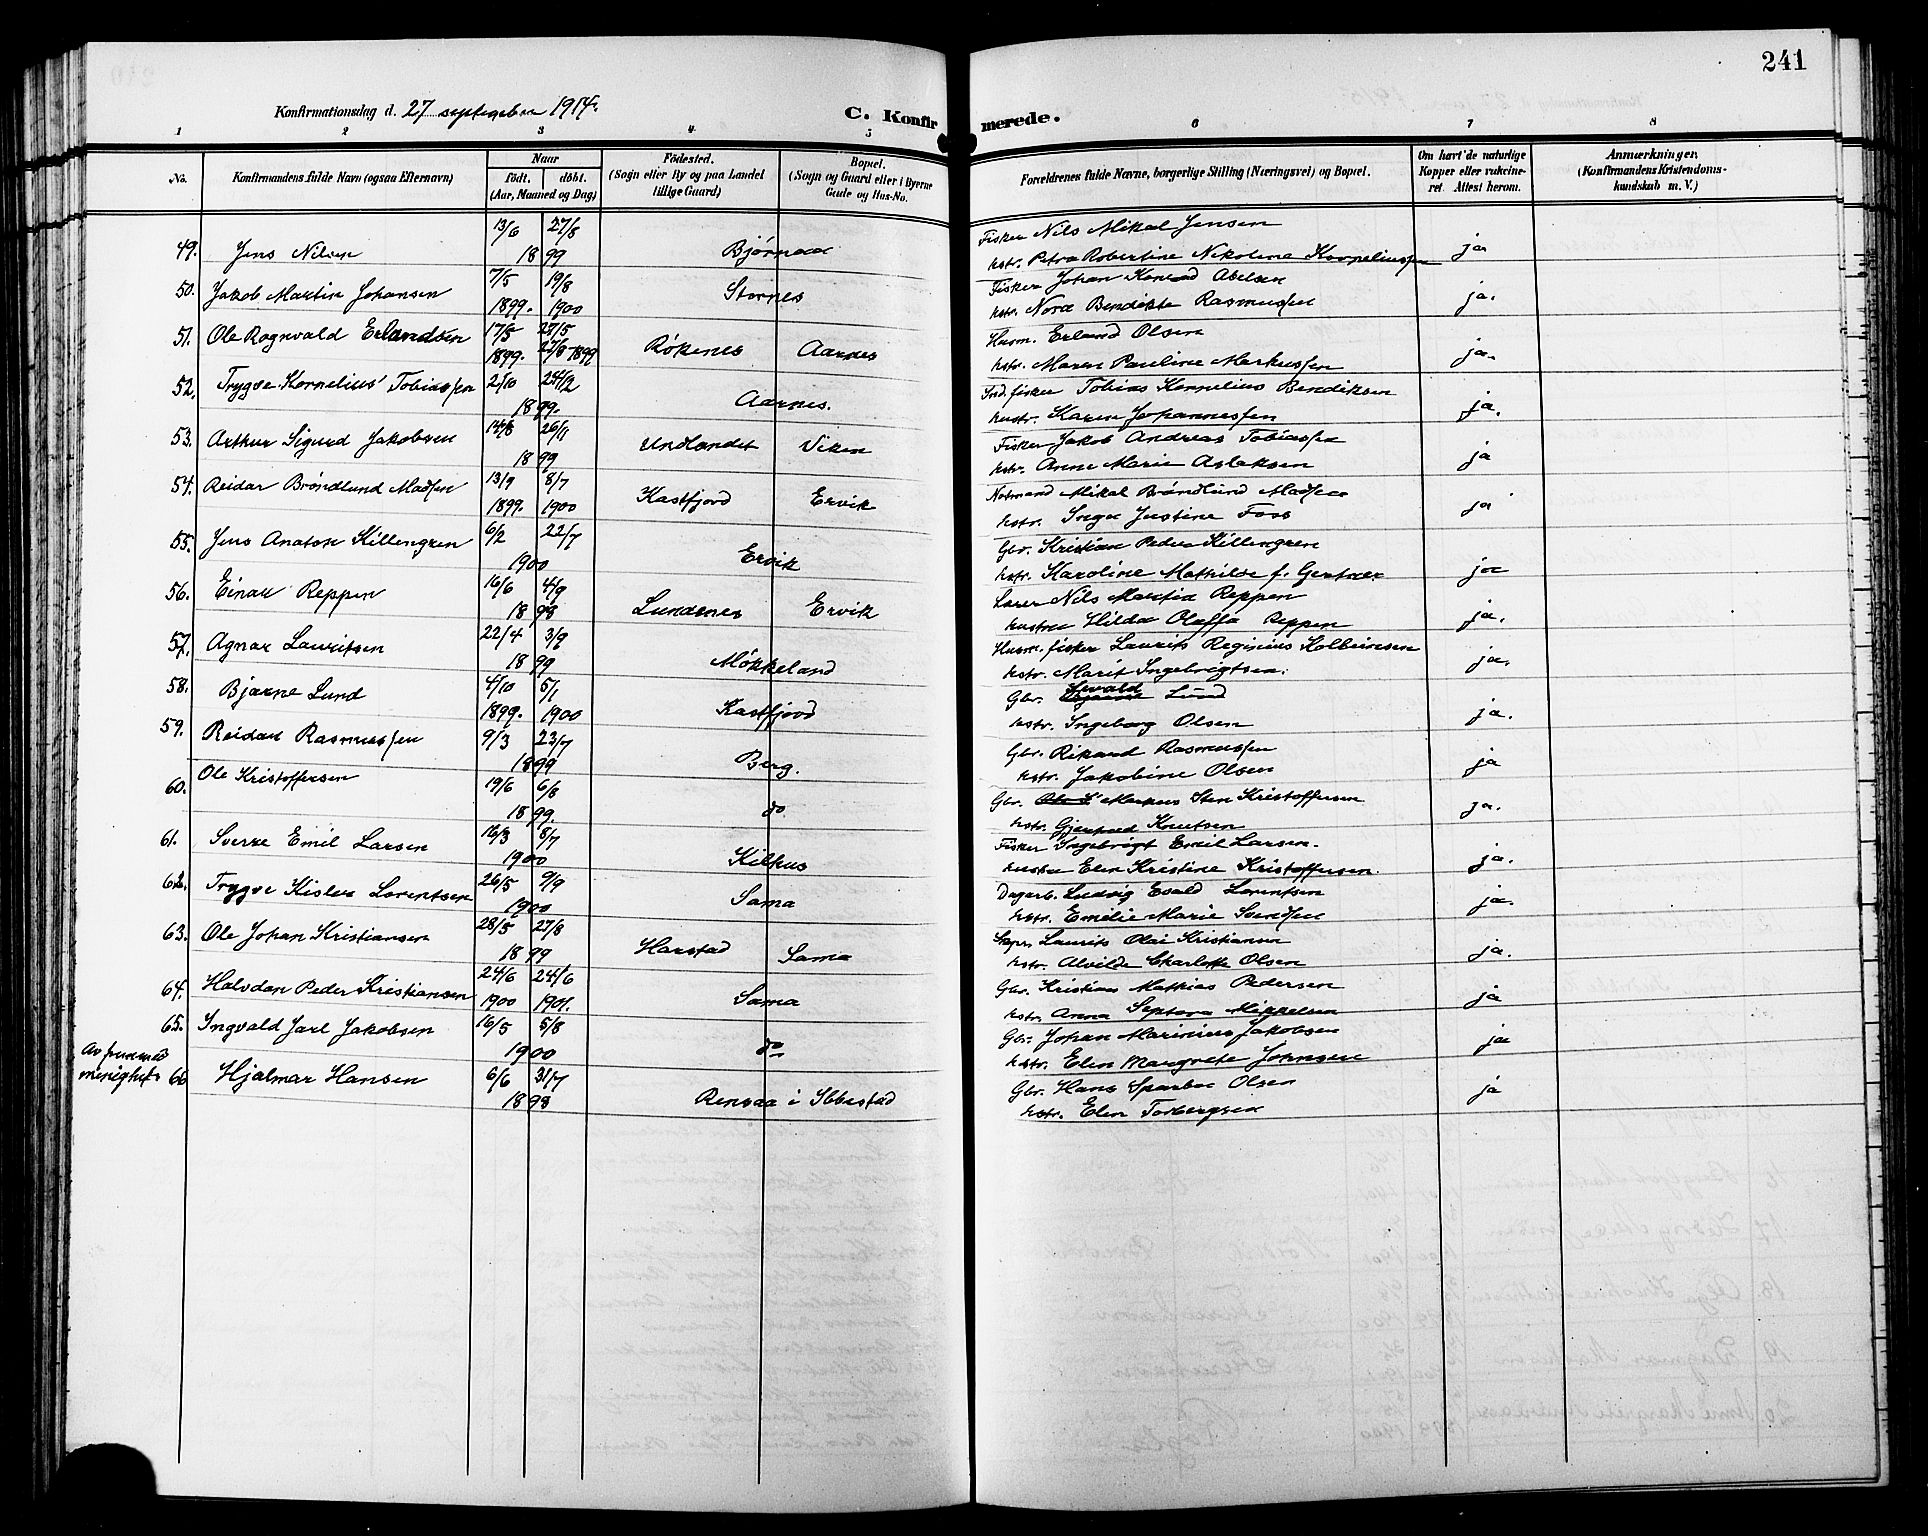 241
Konfirmationsdag d. 27 september 1914.
C. Konfirmerede.
1 2 3 4 5 6 7 8
No.
Konfirmandens fulde Navn (ogsaa Efternavn)
Naar
født. døbt.
(Aar, Maaned og Dag)
Fødested.
(Sogn eller By og paa Landet
tillige Gaard)
Bopæl.
(Sogn og Gaard eller i Byerne
Gade og Hus-No.
Forældrenes fulde Navne, borgerlige Stilling (Næringsvei) og Bopæl.
Om havt de naturlige
Kopper eller vaccine-
ret. Attest herom.
Anmærkninger.
(Konfirmandens Kristendoms-
kundskab m. V.)
49. Jens Nilsen 13/6 27/8 1899 Bjørnaa Fisker Nils Mikal Jensen ja
hstr. Petra Robertine Nikoline Korneliussen
50. Jakob Martin Johansen 7/5 1899. 19/8 1900 Stornes Fisker Johan Konrad Abelsen ja.
hstr. Nora Bendikte Rasmussen
51. Ole Ragnvald Erlandsen 17/5 1899. 27/8 1899 Røkenes Aarnes Husm. Erland Olsen ja.
hstr. Maren Pauline Markussen
52. Trygve Kornelius Tobiassen 2/10 24/12 1899. Aarnes. Ind. fisker Tobias Kornelius Bendiksen ja.
hustr. Karen Johannessen
53. Arthur Sigurd Jakobsen 14/8 26/11 1899 Undlandet Viken Fisker Jakob Andreas Tobiassen ja
hstr. Anne Marie Aslaksen
54. Reidar Brøndlund Madsen 13/9 1899. 8/7 1900 Kastfjord Ervik Notmand Mikal Brøndlund Madsen ja
hstr. Inga Justine Foss
55. Jens Anaton Killengren 6/2 22/7 1900 Ervik Gbr. Kristian Peder Killengren ja
hstr. Karoline Mathilde f. Gentner
56. Einar Reppen 16/6 4/9 1899 Lundenes Ervik Lærer Nils Martin Reppen ja.
hustru Hilda Olaffa Reppen
57. Agnar Lauritsen 22/4 3/9 1899 Møkkeland Husm. fisker Laurits Reginius Kolbeinsen ja.
hstr. Marit Ingebrigtsen.
58. Bjarne Lund 4/10 1899. 5/1 1900 Kastfjord Gbr. Sevald Lund ja.
hstr. Ingeborg Olsen
59. Reidar Rasmussen 9/3 23/7 1899 Berg. Gbr. Rikard Rasmussen ja
hstr. Jakobine Olsen
60. Ole Kristoffersen 19/6 6/8 1899. do. Gbr. Markus Sten Kristoffersen ja.
hstr. Gjertrud Knutsen
61. Sverre Emil Larsen 16/3 8/7 1900 Kilhus Fisker Ingebrigt Emil Larsen. ja.
hustru Elen Kristine Kristoffersen.
62. Trygve Kisler Lorentsen 26/5 9/9 1900 Sama Dagarb. Ludvig Evald Lorentsen ja.
hstr. Emelie Marie Svendsen
63. Ole Johan Kristiansen 28/5 27/8 1899 Harstad Sama Laurits Olai Kristiansen ja.
hstr. Alvilde Charlotte Olsen
64. Halvdan Peder Kristiansen 24/6 1900 24/6 1901. Sama Gbr. Kristian Mathias Pedersen ja
hstr. Anna Septora Mikkelsen
65. Ingvald Jarl Jakobsen 16/5 5/8 1900 do Gbr. Johan Marinius Jakobsen ja
hstr. Elen Margrete Johnsen
Av fremmed
menighet: 66 Hjalmar Hansen 6/6 31/7 1898 Rensaa i Ibbestad Gbr. Hans Sparboe Olsen ja
hstr. Elen Torbergsen